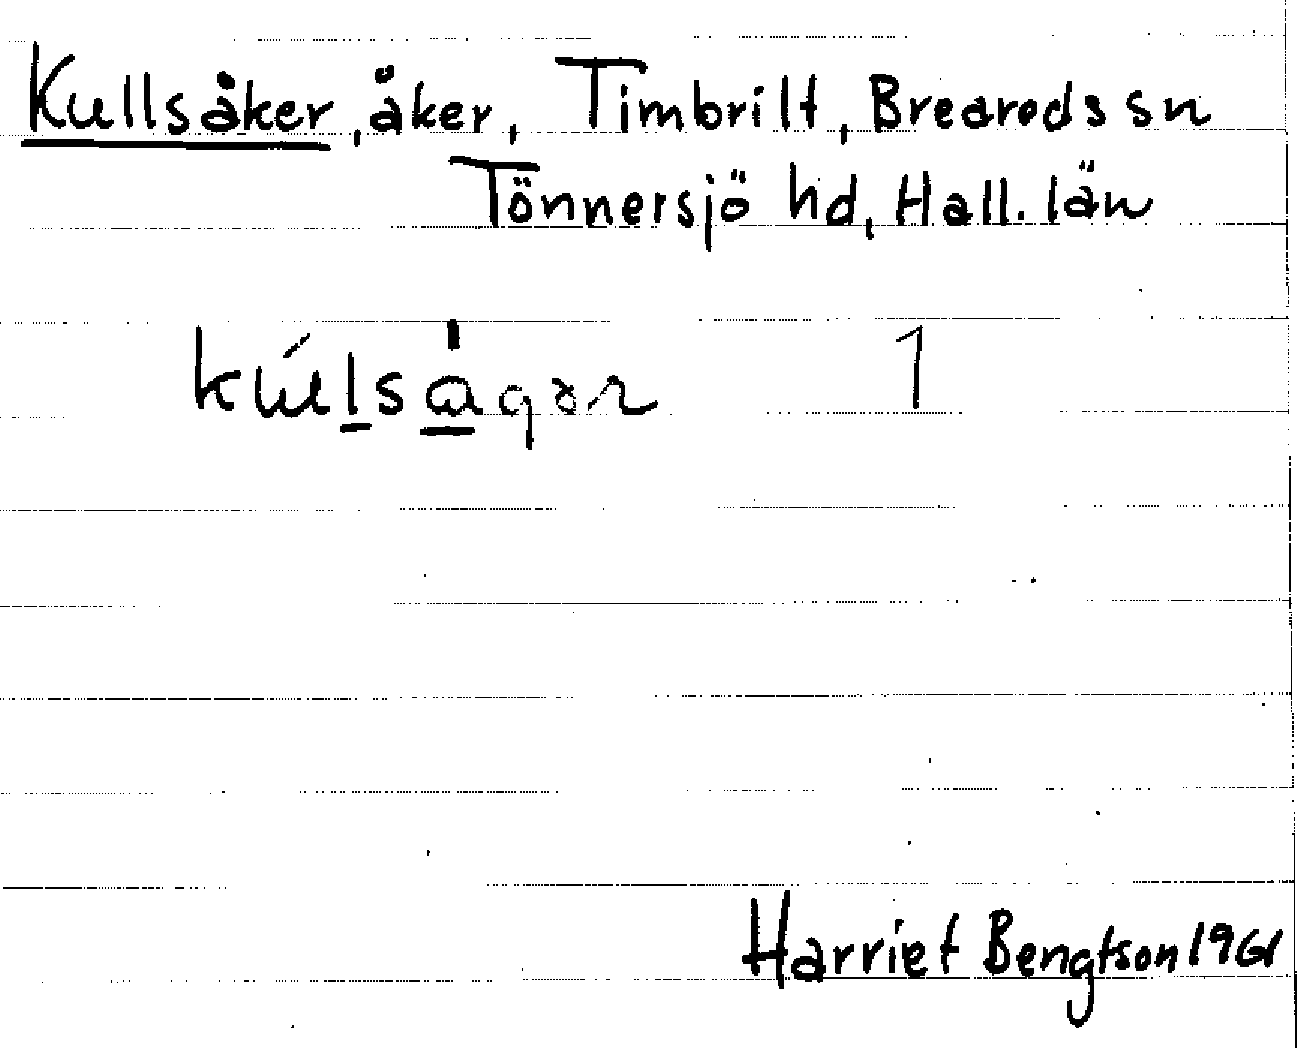 Kullsåker, åker, Timbrilt, Breareds sn
Tönnersjö hd, Hall. län
1
Harriet Bengtson 1961